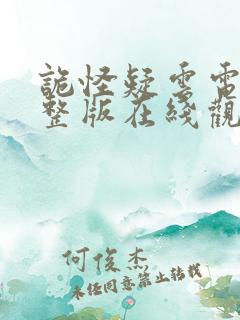 詭怪疑雲電
整版在綫觀
何俊杰
未经同意禁止转载